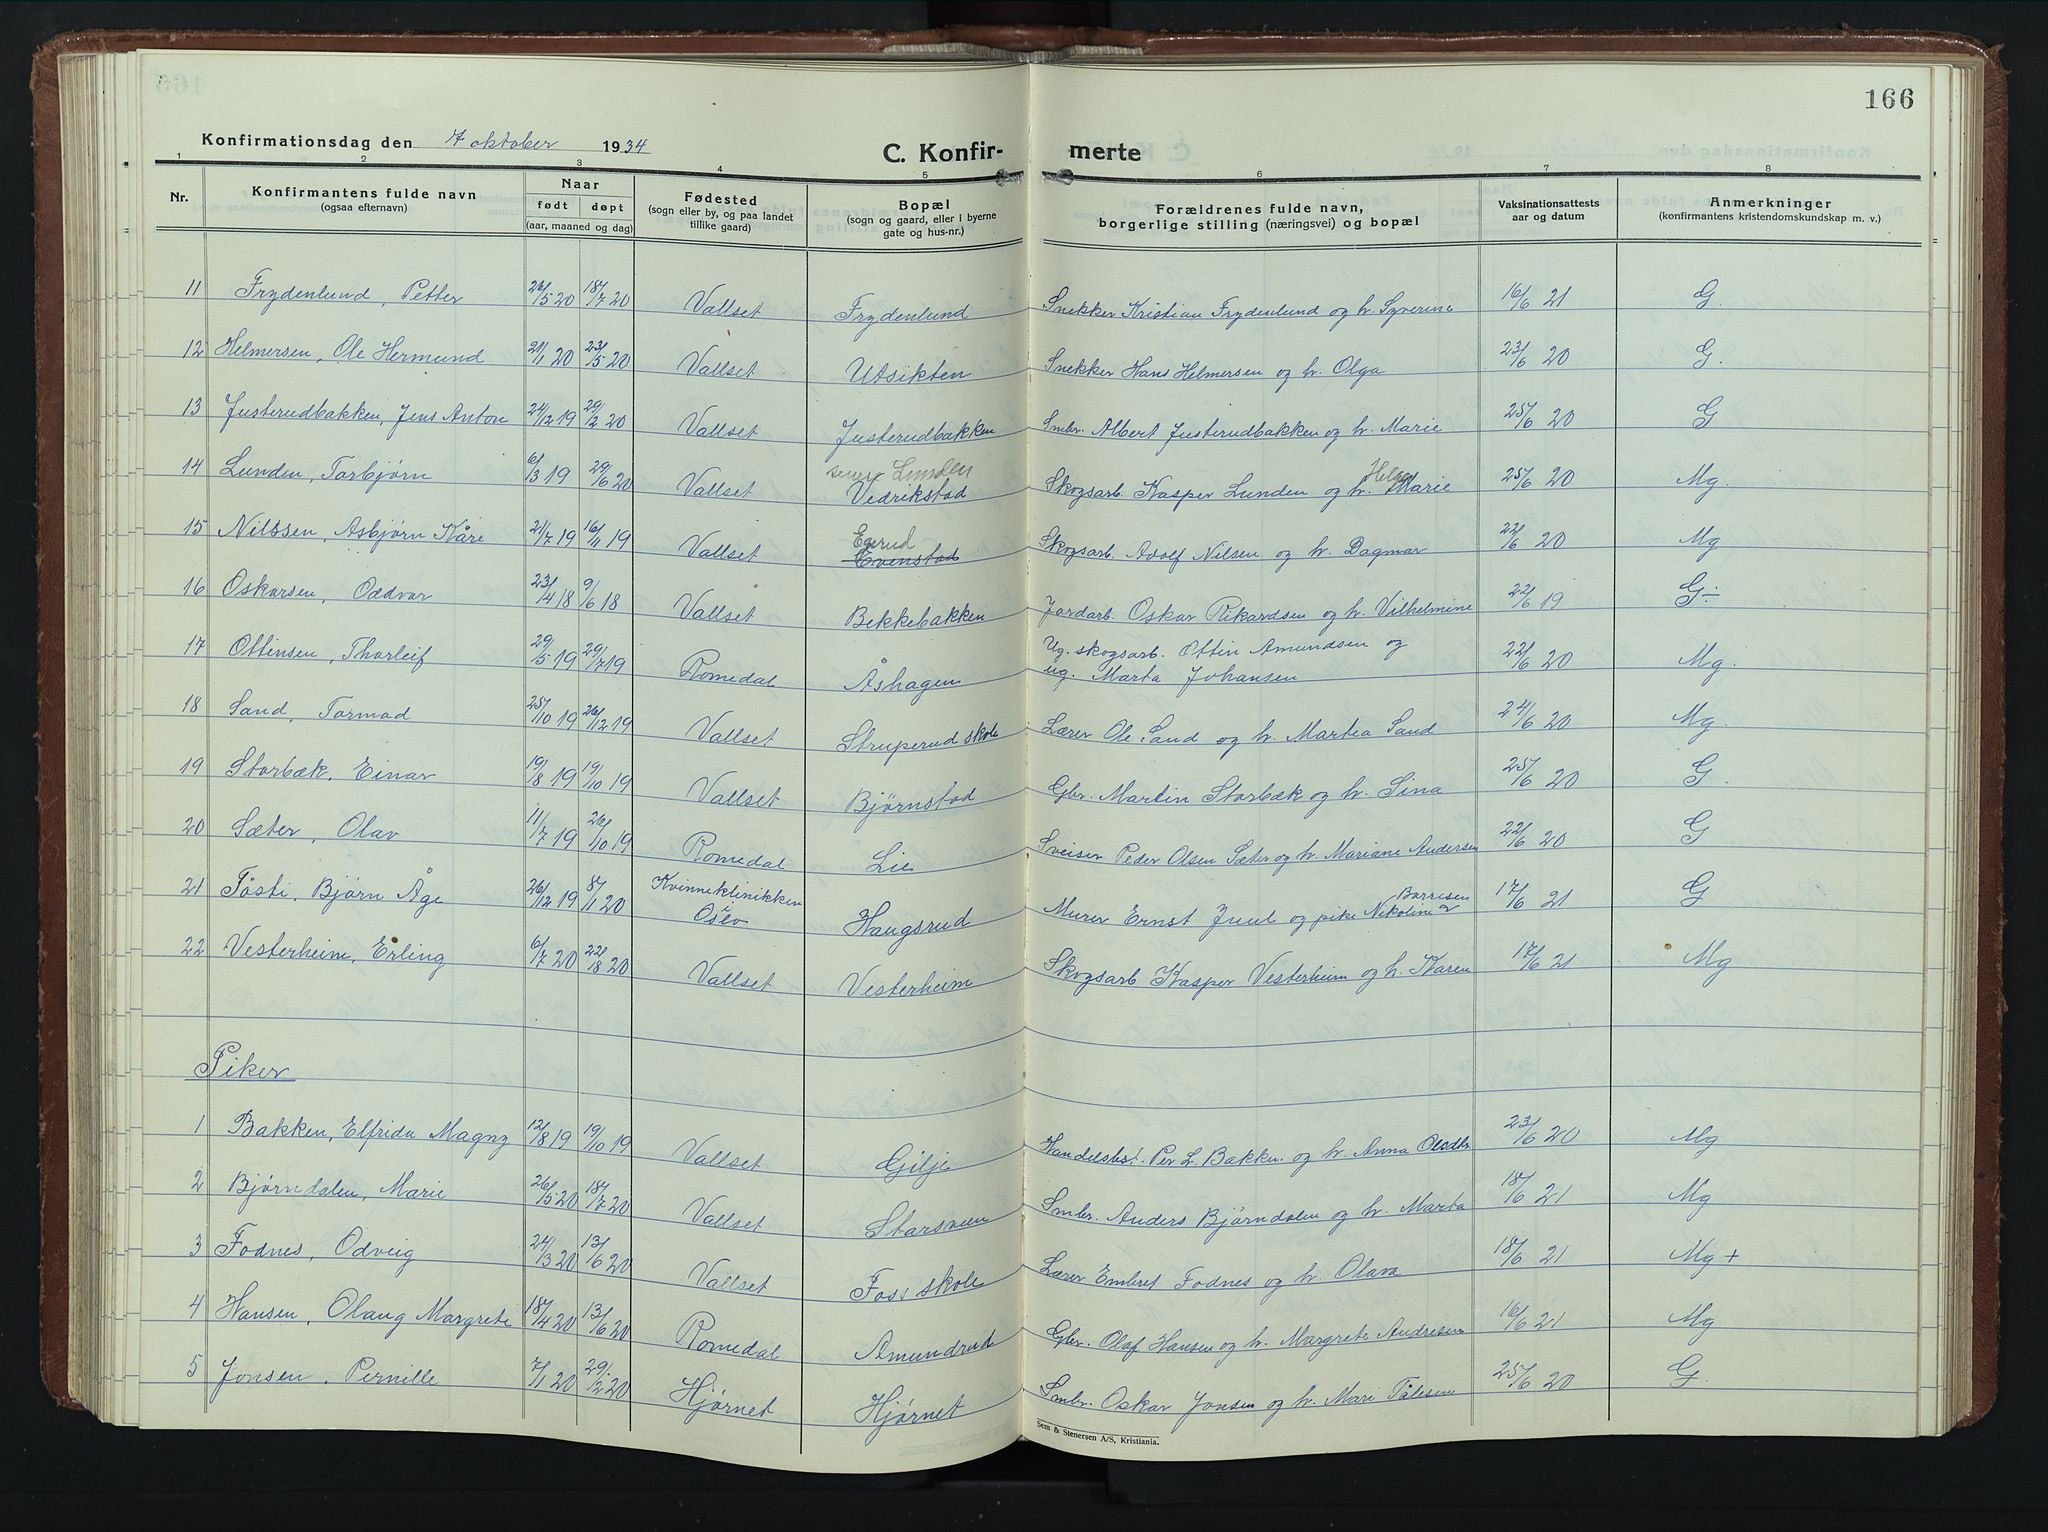 166
Konfirmationsdag den 7 oktober 1934
C. Konfir- merte
1 2 3 4 5 6 7 8
Nr. Konfirmantens fulde navn (ogsaa efternavn) Naar født døpt (aar, maaned og dag) Fødested (sogn eller by, og paa landet tillike gaard) Bopæl (sogn og gaard, eller i byerne gate og hus-nr.) Forældrenes fulde navn, borgerlige stilling (næringsvei) og bopæl Vaksinationsattests aar og datum Anmerkninger (konfirmantens kristendomskundskap m. v.)
11 Frydenlund, Petter 26/5 20 18/7 20 Vallset Frydenlund Snekker Kristian Frydenlund og h. Syverine 16/6 21 G.
12 Helmersen, Ole Hermund 21/1 20 23/5 20 Vallset Utsikten Snekker Hans Helmersen og h. Olga 23/6 20 G.
13 Justerudbakken, Jens Anton 24/12 19 29/2 20 Vallset Justerudbakken Smbr. Albert Justerudbakken og h. Marie 25/6 20 G
14 Lunden, Torbjørn 6/3 19 29/6 20 Vallset senere Lunden Vedrikstad Skogsarb. Kasper Lunden og h. Helga Marie 25/6 20 Mg.
15 Nilssen, Asbjørn Kåre 21/7 19 16/11 19 Vallset Egerud Evenstad Skogsarb. Adolf Nilsen og h. Dagmar 22/6 20 Mg
16 Oskarsen, Oddvar 23/4 18 9/6 18 Vallset Bekkebakken Jordarb. Oskar Rikardsen og h. Vilhelmine 22/6 19 G÷
17 Ottinsen, Thorleif 29/5 19 29/7 19 Romedal Åshagen Ug. skogsarb. Ottin Amundsen og
ug. Marta Johansen 22/6 20 Mg.
18 Sand, Tormod 25/10 19 26/12 19 Vallset Struperud skole Lærer Ole Sand og h. Martea Sand 24/6 20 Mg.
19 Storbæk, Einar 19/8 19 19/10 19 Vallset Bjørnstad Gbr. Martin Storbæk og h. Sina 25/6 20 G.
20 Sæter, Olav 11/7 19 26/10 19 Romedal Lie Sveiser Peder Olsen Sæter og h. Mariane Andersen 22/6 20 G
21 Tösti, Bjørn Åge 26/12 19 8/1 20 Kvinneklinikken i Oslo Haugsrud Murer Ernst Juul og pike Nikoline Borresen 17/6 21 G
22 Vesterheim, Erling 6/7 20 22/8 20 Vallset Vesterheim Skogsarb Kasper Vesterheim og h. Karen 17/6 21 Mg
Piker
1 Bakken, Elfrida Magny 12/8 19 19/10 19 Vallset Gilje Handelsbest. Per L. Bakken og h. Anna Olsdtr 23/6 20 Mg
2 Bjørndalen, Marie 26/5 20 18/7 20 Vallset Storsveen Smbr. Anders Bjørndalen og h. Marta 18/6 21 Mg
3 Fodnes, Odveig 24/3 20 13/6 20 Vallset Foss skole Lærer Embret Fodnes og h. Olava 18/6 21 Mg+
4 Hansen, Olaug Margrete 18/4 20 13/6 20 Romedal Amundrud Gbr. Olaf Hansen og h. Margrete Andresen 16/6 21 Mg
5 Jonsen, Pernille 7/1 20 29/2 20 Hjørnet Hjørnet Smbr. Oskar Jonsen og h. Mari Tålesen 25/6 20 G.
Sem & Stenersen A/S, Kristiania.